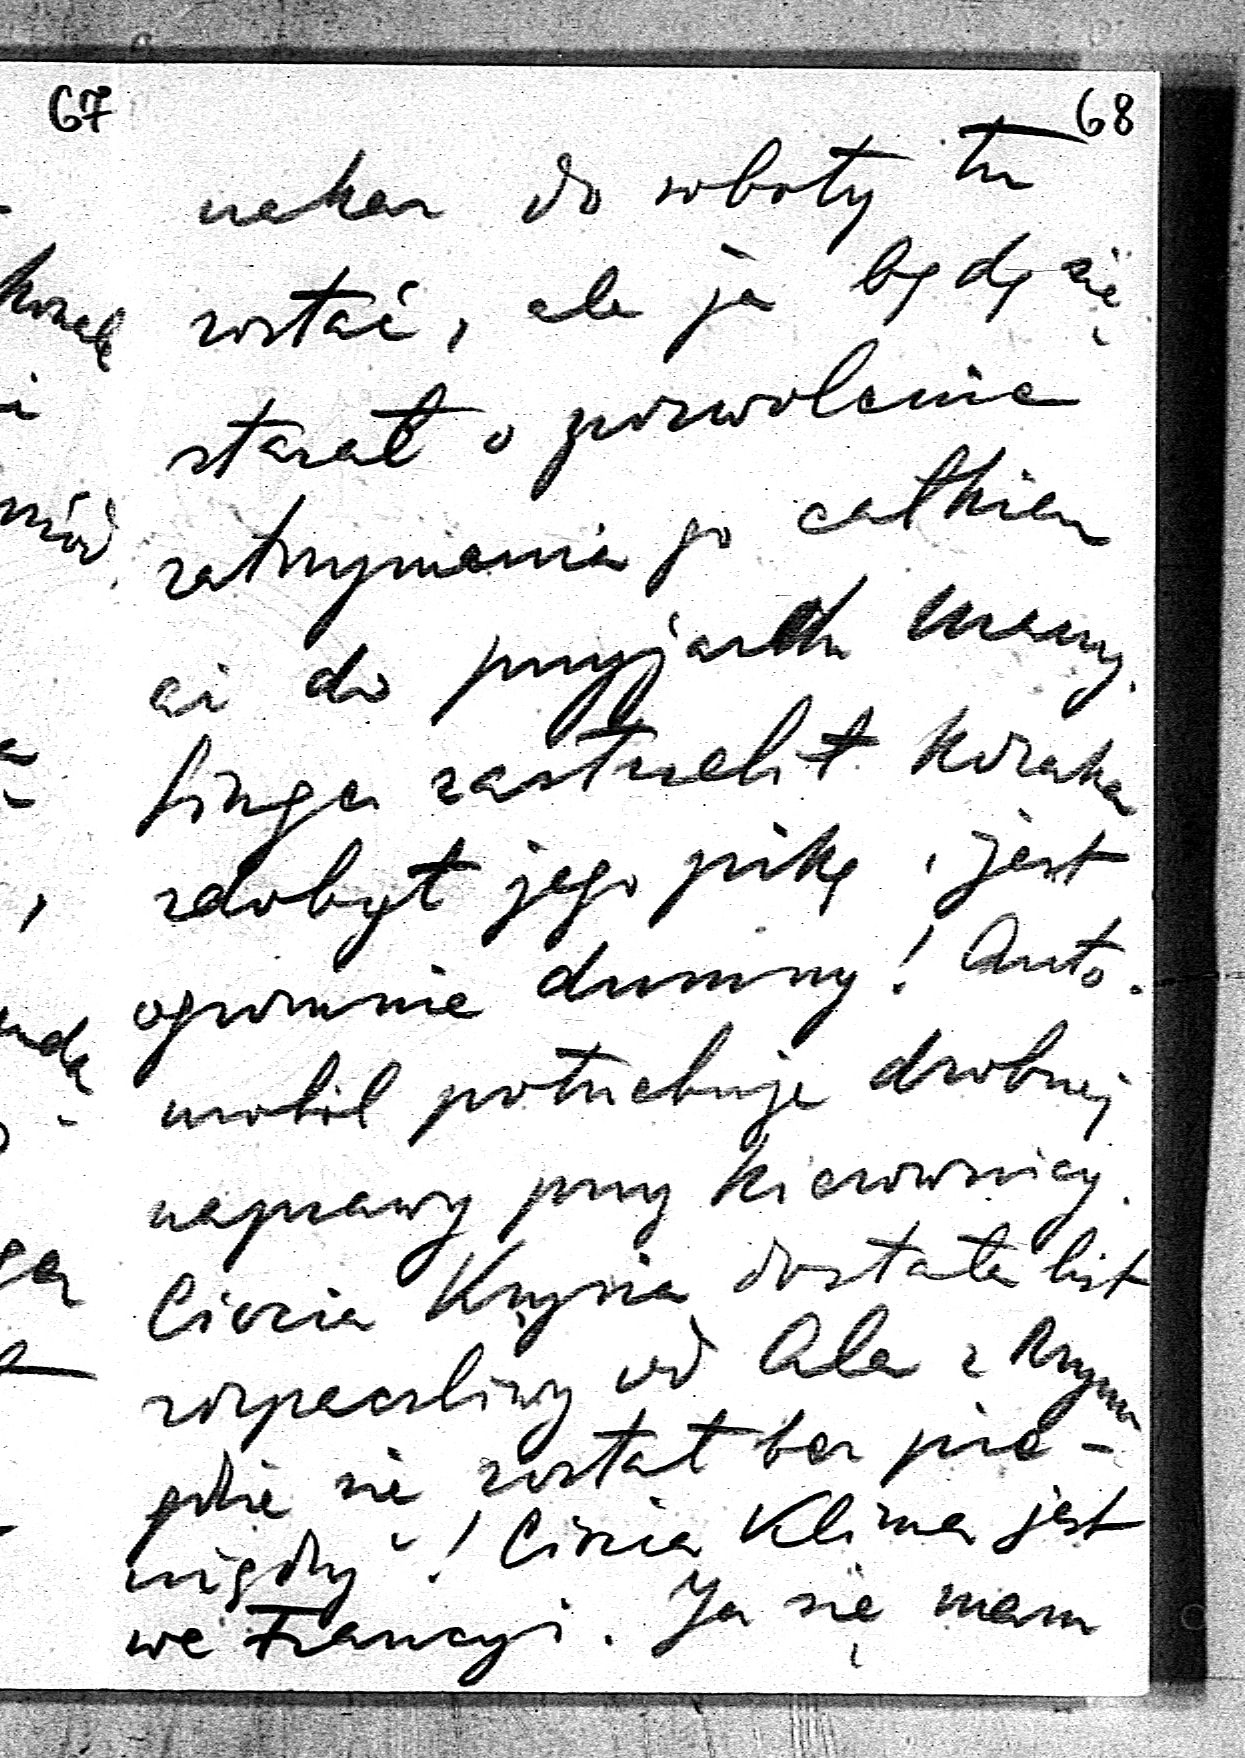 67
68
nakaz do soboty tu
zostać, ale ja będę się
starał o pozwolenie
zatrzymania go całkiem
aż do przyjazdu Mamy.
zastrzelił kozaka
zdobył jego pikę i jest
ogromnie dumny! Auto-
mobil potrzebuje drobnej
naprawy przy kierownicy.
Ciocia Krysia dostała list
rozpaczliwy od Ala z Rzymu
gdzie się został bez pie-
niędzy! Ciocia Klima jest
we Francyi. Ja się mam